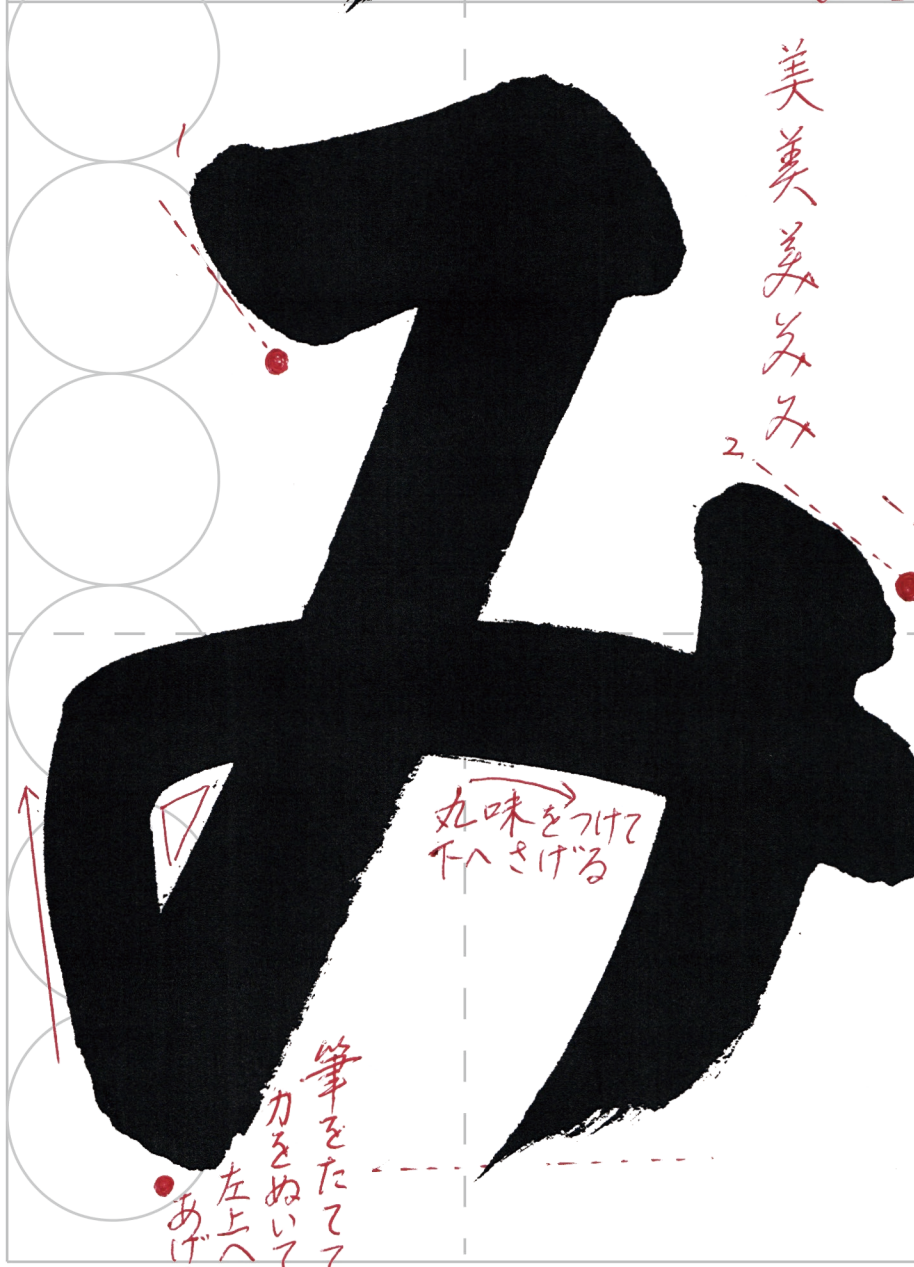 み
1
美
美
美
み
み
2
丸味をつけて
下へさげる
筆をたてて
力をぬいて
左上へ
あげ